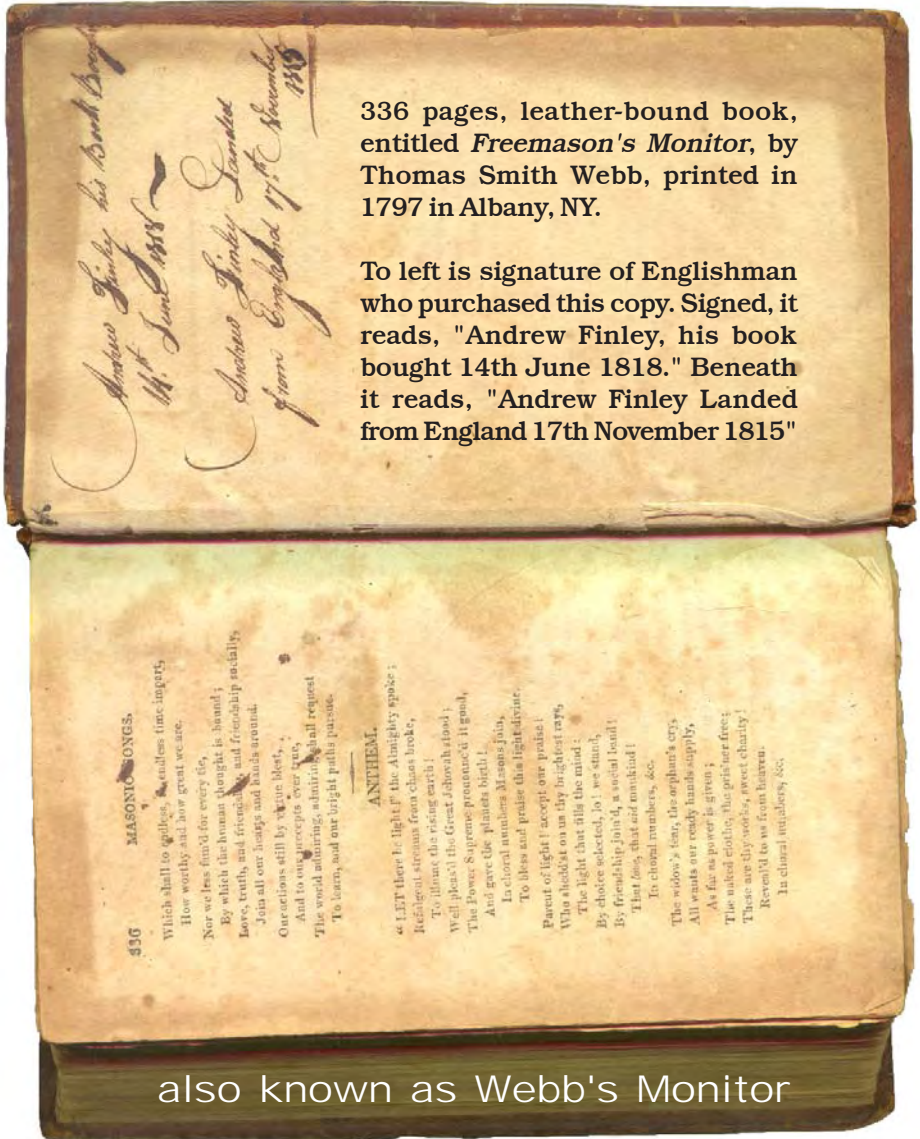 Andrew Finley his Book
14th June 1818
Andrew Finley Landed
from England 17th November
336 pages, leather-bound book,
entitled Freemason's Monitor, by
Thomas Smith Webb, printed in
1797 in Albany, NY.
To left is signature of Englishman
who purchased this copy. Signed, it
reads, "Andrew Finley, his book
bought 14th June 1818." Beneath
it reads, "Andrew Finley Landed
from England 17th November 1815"
336 MASONIC SONGS.
Which shall to endless, endless time impart,
How worthy and how great we are.
Nor we less fam'd for every tie,
By which the human thought is bound;
Love, truth, and friendship, and friendship socially,
Join all our hearts and hands around.
Our actions still by virtue blest,
And to our precepts ever true,
The world admiring, admiring shall request
To learn, and our bright paths pursue.
ANTHEM.
"LET there be light!" the Almighty spoke;
Refulgent streams from chaos broke,
To illume the rising earth!
Well pleas'd the Great Jehovah stood;
The Power Supreme pronounc'd it good,
And gave the planets birth!
In choral numbers Masons join,
To bless and praise this light divine.
Parent of light! accept our praise!
Who shedd'st on us thy brightest rays,
The light that fills the mind:
By choice selected, lo! we stand,
By friendship join'd, a social band!
That love, that aid mankind!
In choral numbers, &c.
The widow's tear, the orphan's cry,
All wants our ready hands supply,
As far as power is given;
The naked clothe, the pris'ner free;
These are thy works, sweet charity!
Reveal'd to us from heaven.
In choral numbers, &c.
also known as Webb's Monitor